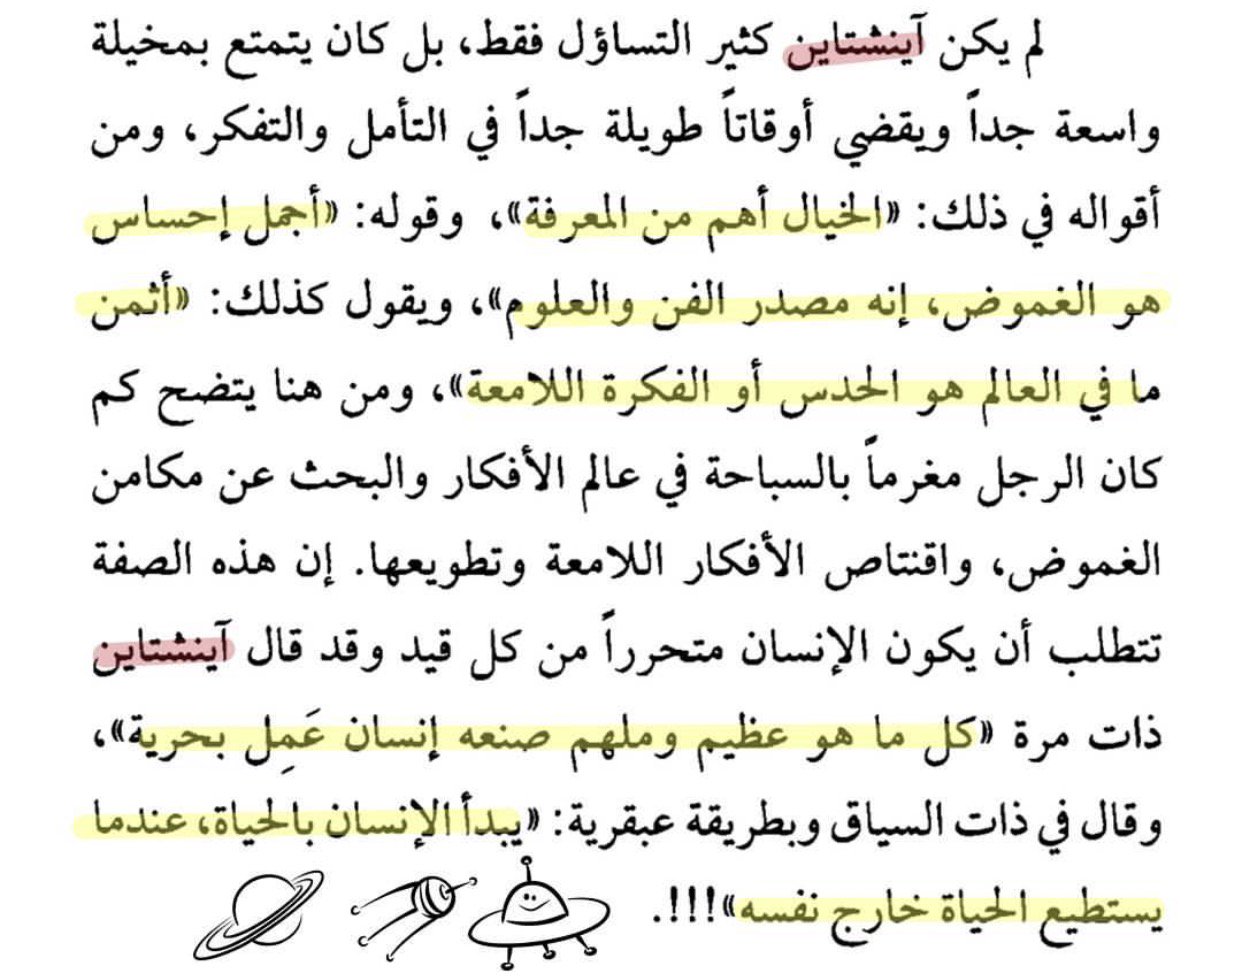 لم يكن آينشتاين كثير التساؤل فقط، بل كان يتمتع بمخيلة
واسعة جداً ويقضي أوقاتاً طويلة جداً في التأمل والتفكر، ومن
أقواله في ذلك: «الخيال أهم من المعرفة»، وقوله: «أجمل إحساس
هو الغموض، إنه مصدر الفن والعلوم»، ويقول كذلك: «أثمن
ما في العالم هو الحدس أو الفكرة اللامعة»، ومن هنا يتضح كم
كان الرجل مغرماً بالسباحة في عالم الأفكار والبحث عن مكامن
الغموض، واقتناص الأفكار اللامعة وتطويعها. إن هذه الصفة
تتطلب أن يكون الإنسان متحرراً من كل قيد وقد قال آينشتاين
ذات مرة «كل ما هو عظيم وملهم صنعه إنسان عَمِل بحرية»،
وقال في ذات السياق وبطريقة عبقرية: «يبدأ الإنسان بالحياة، عندما
يستطيع الحياة خارج نفسه»!!!.